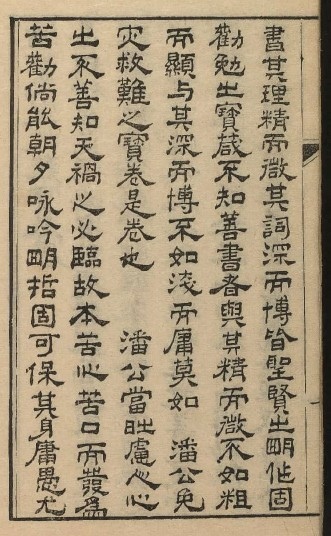 書其理精而微其詞深而博皆聖賢之明作固
勸勉之寶藏不知善書者與其精而微不如粗
而顯与其深而博不如淺而庸莫如　潘公免
灾救難之寶卷是卷也　　潘公當世慮人心
之不善知天禍之必臨故本苦心苦口而發爲
苦勸倘能朝夕咏吟明哲固可保其身庸愚尤